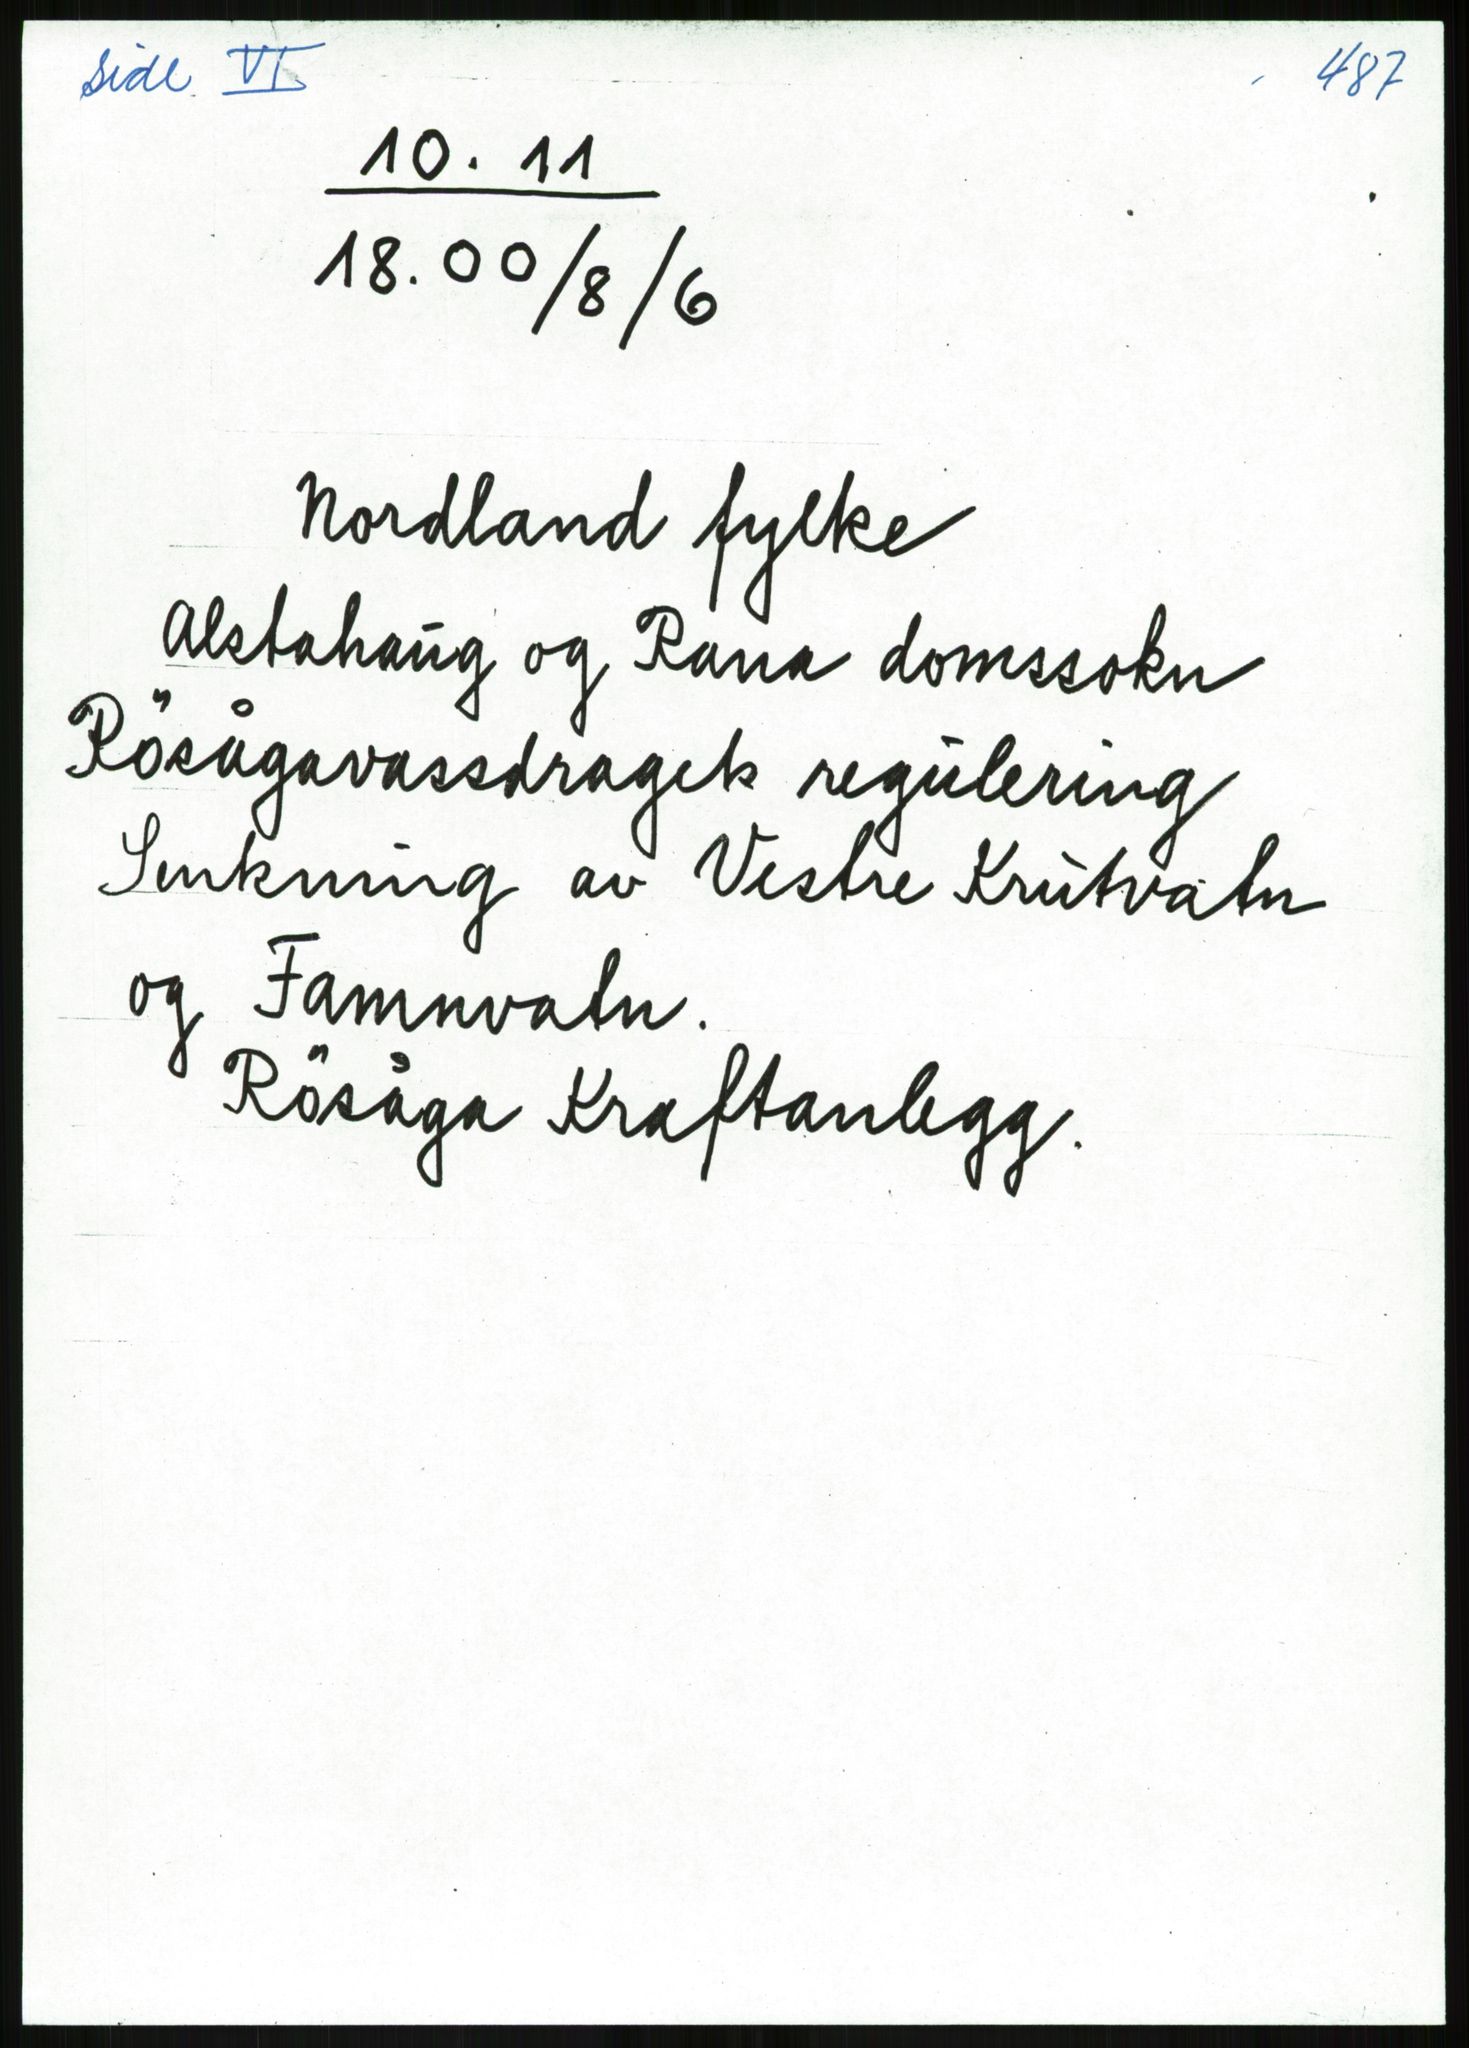 Side VI 487
10. 11
18.00/8/6
Nordland fylke
Alstahaug og Rana domssokn
Rösågavassdragets regulering
Senkning av Vestre Krutvatn
og Famnvatn.
Rösåga Kraftanlegg.